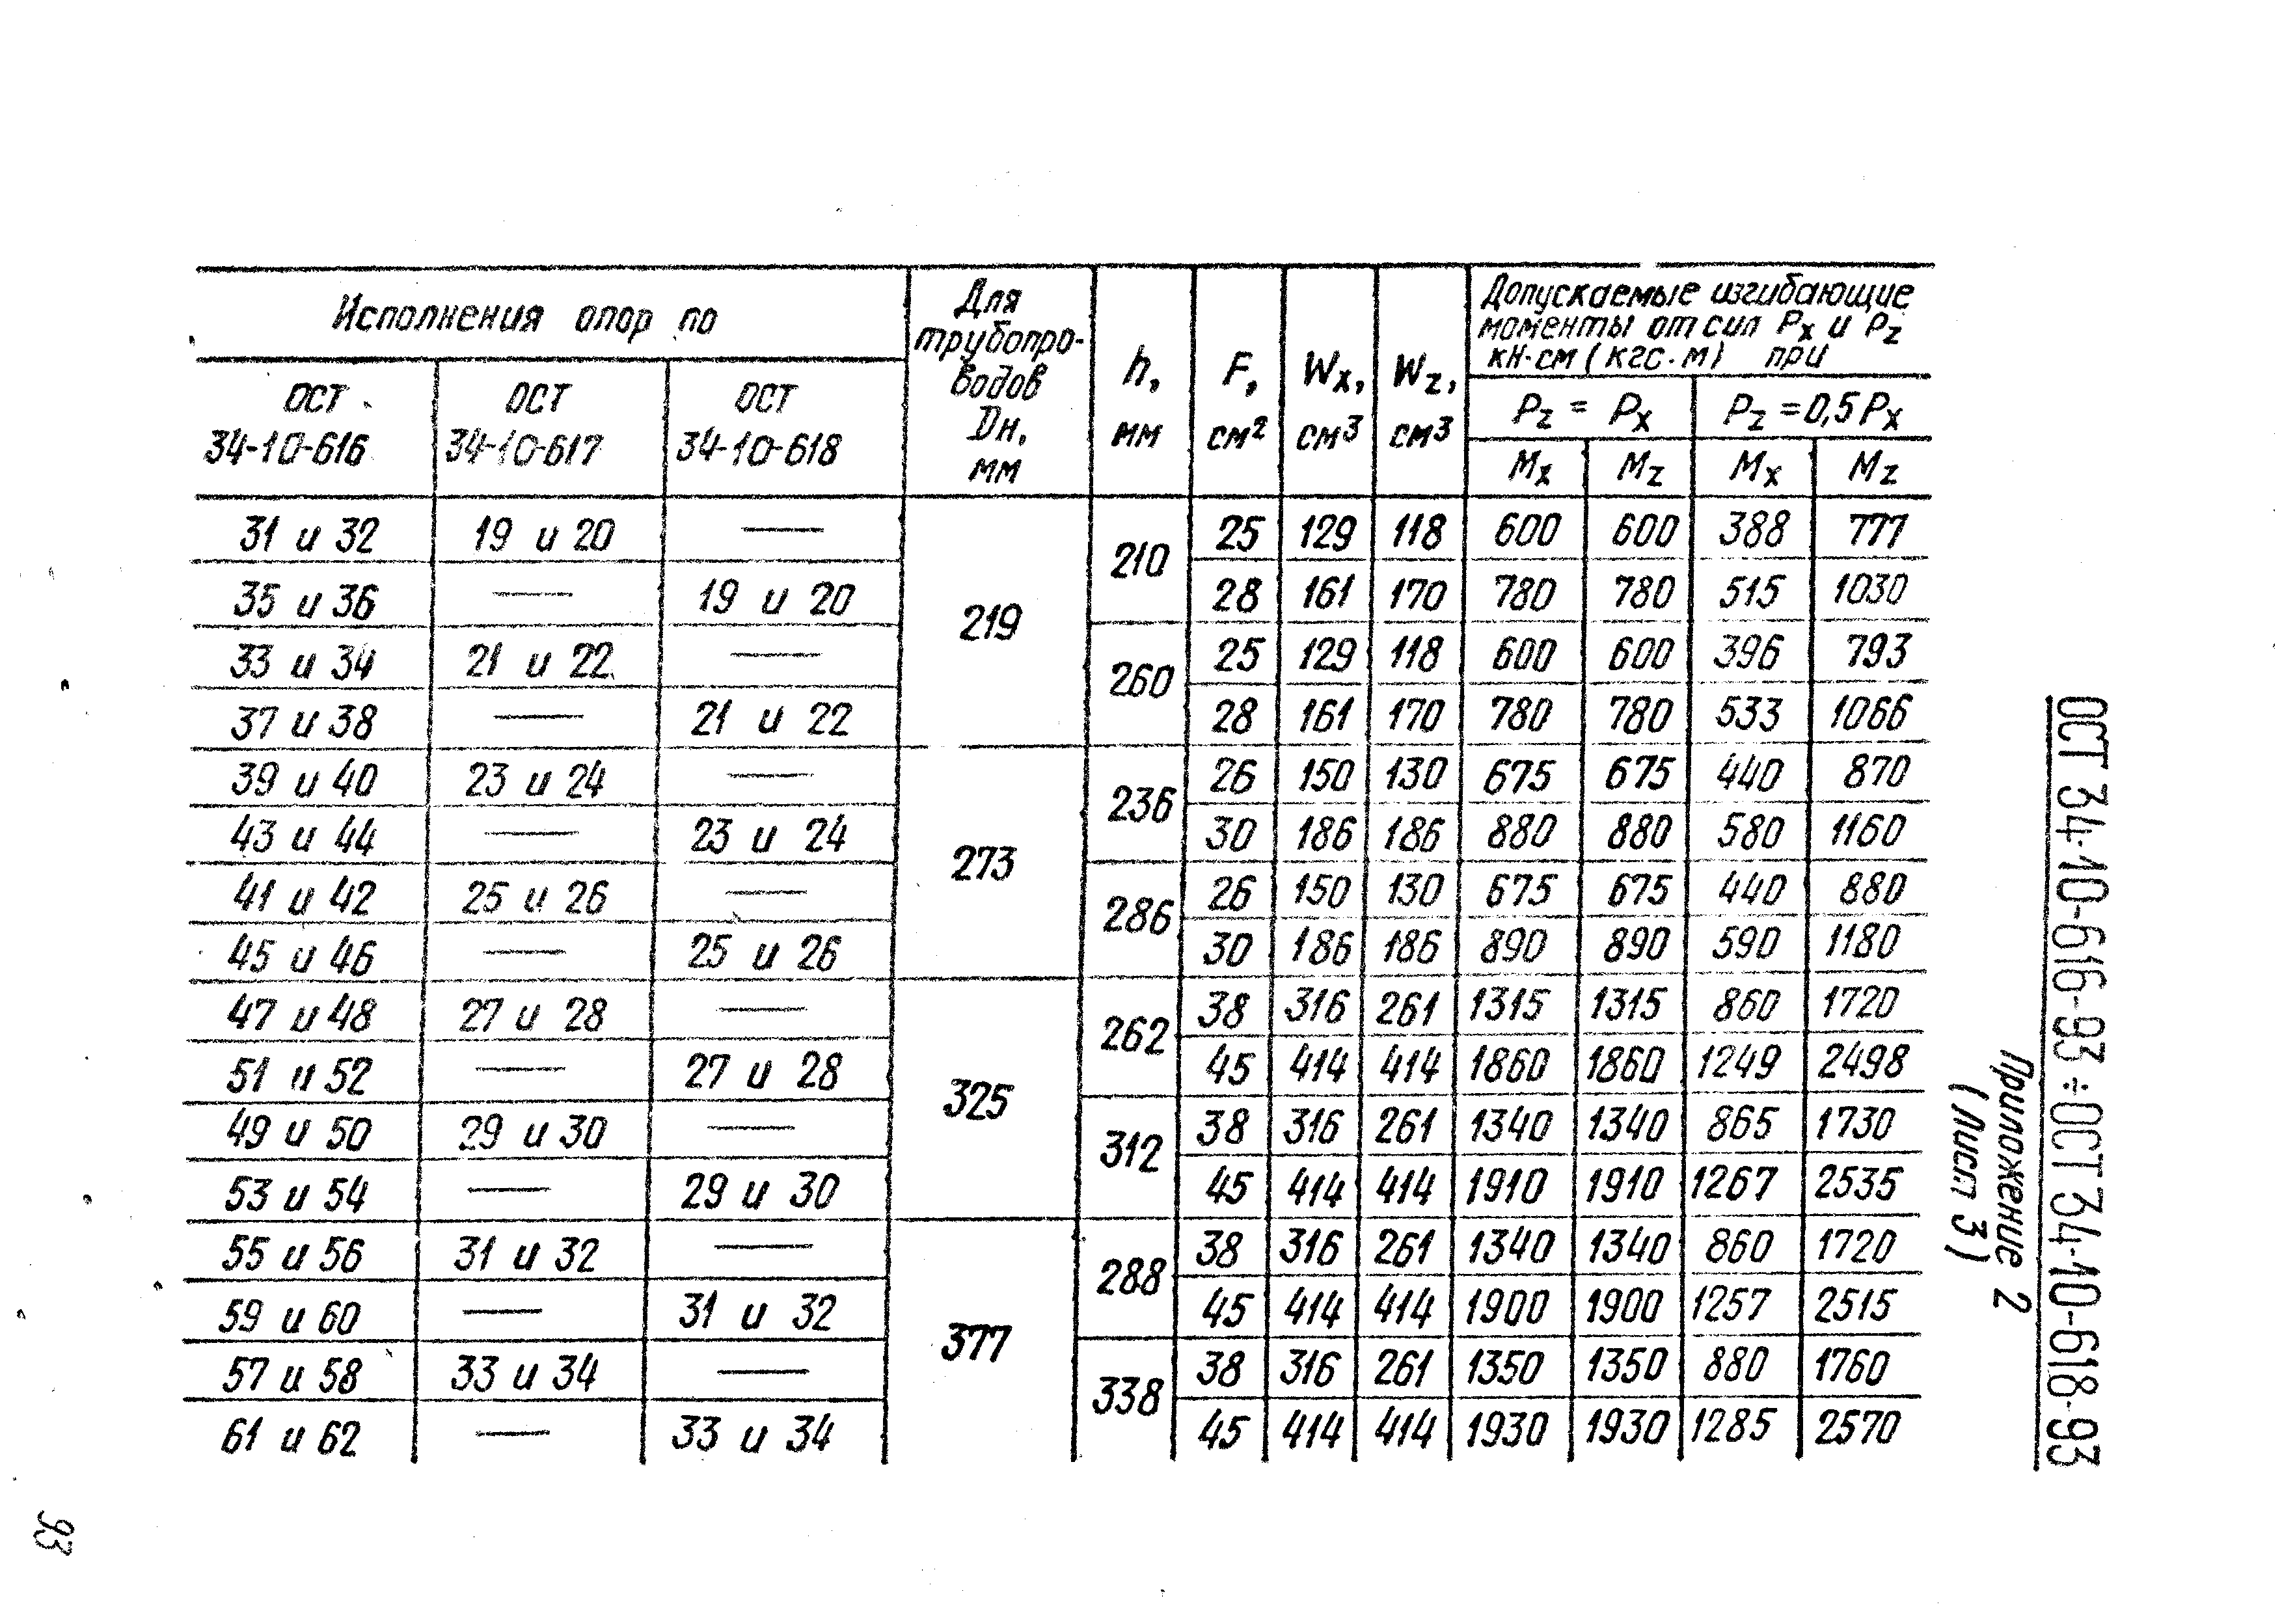 Исполнения опор по
ОСТ 34-10-616
ОСТ 34-10-617
ОСТ 34-10-618
Для
трубопро-
водов
Dн,
мм
h,
мм
F,
см²
Wx,
см³
Wz,
см³
Допускаемые изгибающие
моменты от сил Px и Pz
кН·см (кгс·м) при
Pz = Px
Pz = 0,5 Px
Mx Mz Mx Mz
31 и 32 19 и 20 — 219 210 25 129 118 600 600 388 777
35 и 36 — 19 и 20 28 161 170 780 780 515 1030
33 и 34 21 и 22 — 260 25 129 118 600 600 396 793
37 и 38 — 21 и 22 28 161 170 780 780 533 1066
39 и 40 23 и 24 — 273 236 26 150 130 675 675 440 870
43 и 44 — 23 и 24 30 186 186 880 880 580 1160
41 и 42 25 и 26 — 286 26 150 130 675 675 440 880
45 и 46 — 25 и 26 30 186 186 890 890 590 1180
47 и 48 27 и 28 — 325 262 38 316 261 1315 1315 860 1720
51 и 52 — 27 и 28 45 414 414 1860 1860 1249 2498
49 и 50 29 и 30 — 312 38 316 261 1340 1340 865 1730
53 и 54 — 29 и 30 45 414 414 1910 1910 1267 2535
55 и 56 31 и 32 — 377 288 38 316 261 1340 1340 860 1720
59 и 60 — 31 и 32 45 414 414 1900 1900 1257 2515
57 и 58 33 и 34 — 338 38 316 261 1350 1350 880 1760
61 и 62 — 33 и 34 45 414 414 1930 1930 1285 2570
ОСТ 34-10-616-93 ÷ ОСТ 34-10-618-93
Приложение 2
(Лист 3)
93